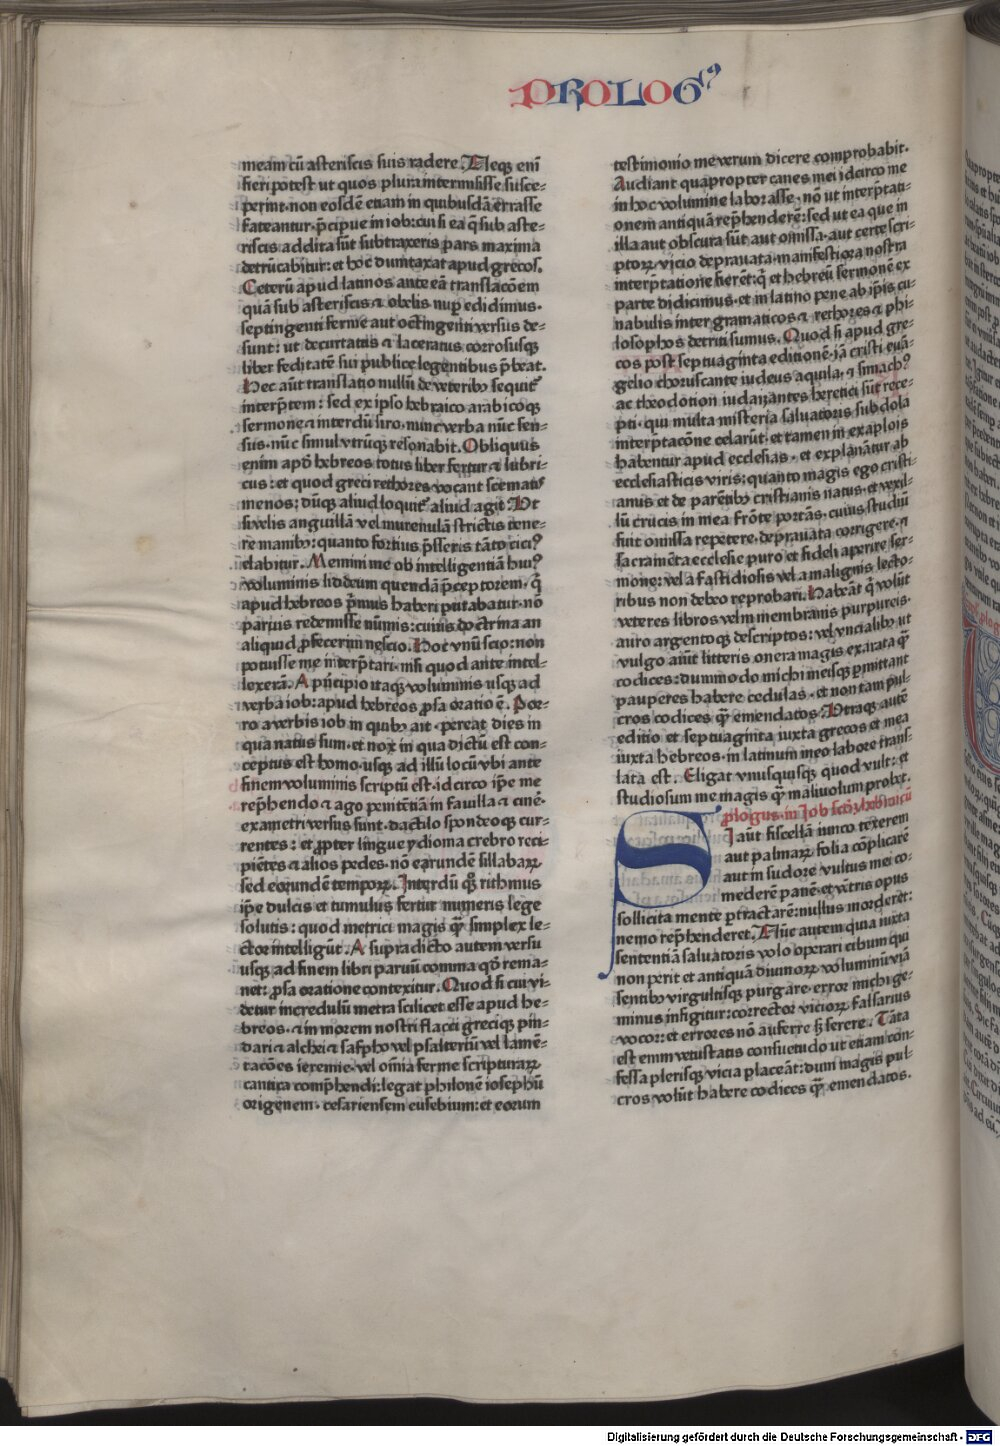 PROLOGꝰ
meam cū asteriscis suis radere. Neqꝫ enī
fieri potest ut quos plura intermisisse susce-
perint· non eosdē etiam in quibusdā errasse
fateantur· p̄cipue in iob: cui si ea q̄ sub aste-
riscis addita sūt subtraxeris pars maxima
detrūcabitur: et hoc dumtaxat apud grecos.
Ceterū apud latinos ante eā translacōem
quā sub asteriscis ⁊ obelis nup̄ edidimus·
septingenti ferme aut octingenti versus de-
sunt: ut decurtatus ⁊ laceratus corrosusqꝫ
liber feditatē sui publice legentibus p̄beat.
Hec aūt translatio nullū de veteribꝫ sequit᷑
interp̄tem: sed ex ipso hebraico arabicoqꝫ
sermone ⁊ interdū siro· nunc verba nūc sen-
sus· nūc simul vtrūqꝫ resonabit. Obliquus
enim apd̄ hebreos totus liber fertur ⁊ lubri-
cus: et quod greci rethores vocant scematis
menos: dūqꝫ aliud loquit᷑ aliud agit. Ut
si velis anguillā vel murenulā strictis tene-
re manibꝫ: quanto fortius p̄sseris tāto cici?
elabitur. Memini me ob intelligentiā huiꝰ
voluminis lideum quendā p̄ceptorem· q̄
apud hebreos p̄mus haberi putabatur· nō
paruis redemisse nūmis: cuius doctrina an
aliquid p̄fecerim nescio. Hoc vnū scio: non
potuisse me interp̄tari· nisi quod ante intel-
lexerā. A p̄ncipio itaqꝫ voluminis usqꝫ ad
verba iob: apud hebreos p̄sa oratio ē. Por-
ro a verbis iob in quibꝫ ait· pereat dies in
qua natus sum· et nox in qua dictū est con-
ceptus est homo· usqꝫ ad illū locū vbi ante
finem voluminis scriptū est· idcirco ip̄e me
rep̄hendo ⁊ ago penitētiā in fauilla ⁊ cinē·
exametri versus sunt· dactilo spondeoqꝫ cur-
rentes: et p̄pter lingue ydioma crebro reci-
piētes ⁊ alios pedes· nō earundē sillabaꝝ
sed eorundē tempoꝝ. Interdū qꝫ rithmus
ip̄e dulcis et tumulus fertur numeris lege
solutis: quod metrici magis qꝫ̄ simplex le-
ctor intelligūt. A supradicto autem versu
usqꝫ ad finem libri paruū comma qd̄ rema-
net: p̄sa oratione contexitur. Quod si cui vi-
detur incredulū metra scilicet esse apud he-
breos· ⁊ in morem nostri flacci greciqꝫ pin-
dari ⁊ alchei ⁊ sapho vel psalteriū vel lamē-
tacōes ieremie· vel oīnia ferme scripturaꝝ
cantica comp̄hendi: legat philonē iosephū
origenem· cesariensem eusebium: et eorum
testimonio me verum dicere comprobabit.
Audiant quapropter canes mei idcirco me
in hoc volumine laborasse· nō ut interp̄tati-
onem antiquā rep̄henderē: sed ut ea que in
illa aut obscura sūt aut omissa· aut certe scri-
ptoꝝ vicio deprauata· manifestiora nostra
interp̄tatione fierēt: q̄ et hebreū sermonē ex
parte didicimus· et in latino pene ab ip̄is cu-
nabulis inter gramaticos ⁊ rethores ⁊ phi-
losophos detriti sumus. Quod si apud gre-
cos post septuaginta editionē· iā cristi euā-
gelio choruscante iudeus aquila· ⁊ simachꝰ
ac theodotion iudaizantes heretici sūt rece-
pti· qui multa misteria saluatoris subdola
interp̄tacōne celarūt· et tamen in exaplois
habentur apud ecclesias· et explanātur ab
ecclesiasticis viris: quanto magis ego cristi-
anus et de parētibꝫ cristianis natus· et vexil-
lū crucis in mea frōte portās· cuius studiū
fuit omissa repetere· dep̄uata corrigere· ⁊
sacramēta ecclesie puro et fideli aperire ser-
mone: vel a fastidiosis vel a malignis lecto-
ribus non debeo reprobari. Habeāt q̄ volūt
veteres libros vel in membranis purpureis·
auro argentoqꝫ descriptos: vel vncialibꝫ ut
vulgo aiūt litteris onera magis exarata qꝫ̄
codices: dummodo michi meisqꝫ p̄mittant
pauperes habere cedulas· et non tam pul-
cros codices qꝫ̄ emendatos. Utraqꝫ autē
editio et septuaginta iuxta grecos et mea
iuxta hebreos· in latinum meo labore trans-
lata est. Eligat vnusquisqꝫ quod vult: et
studiosum me magis qꝫ̄ maliuolum probet.
plogus in Job scdꝫ hebraicū
SI aūt fiscellā iunco texerem
aut palmaꝝ folia cōplicarē
aut in sudore vultus mei co-
mederē panē· et vētris opus
sollicita mente p̄tractarē: nullus morderet:
nemo rep̄henderet. Nūc autem quia iuxta
sententiā saluatoris volo operari cibum qui
non perit et antiquā diuinoꝝ voluminū viā
sentibꝫ virgultisqꝫ purgare· error michi ge-
minus infigitur: corrector vicioꝝ falsarius
vocor: et errores nō auferre sꝫ serere. Tāta
est enim vetustatis consuetudo ut etiam con-
fessa plerisqꝫ vicia placeāt: dum magis pul-
cros volūt habere codices qꝫ̄ emendatos.
Digitalisierung gefördert durch die Deutsche Forschungsgemeinschaft - DFG